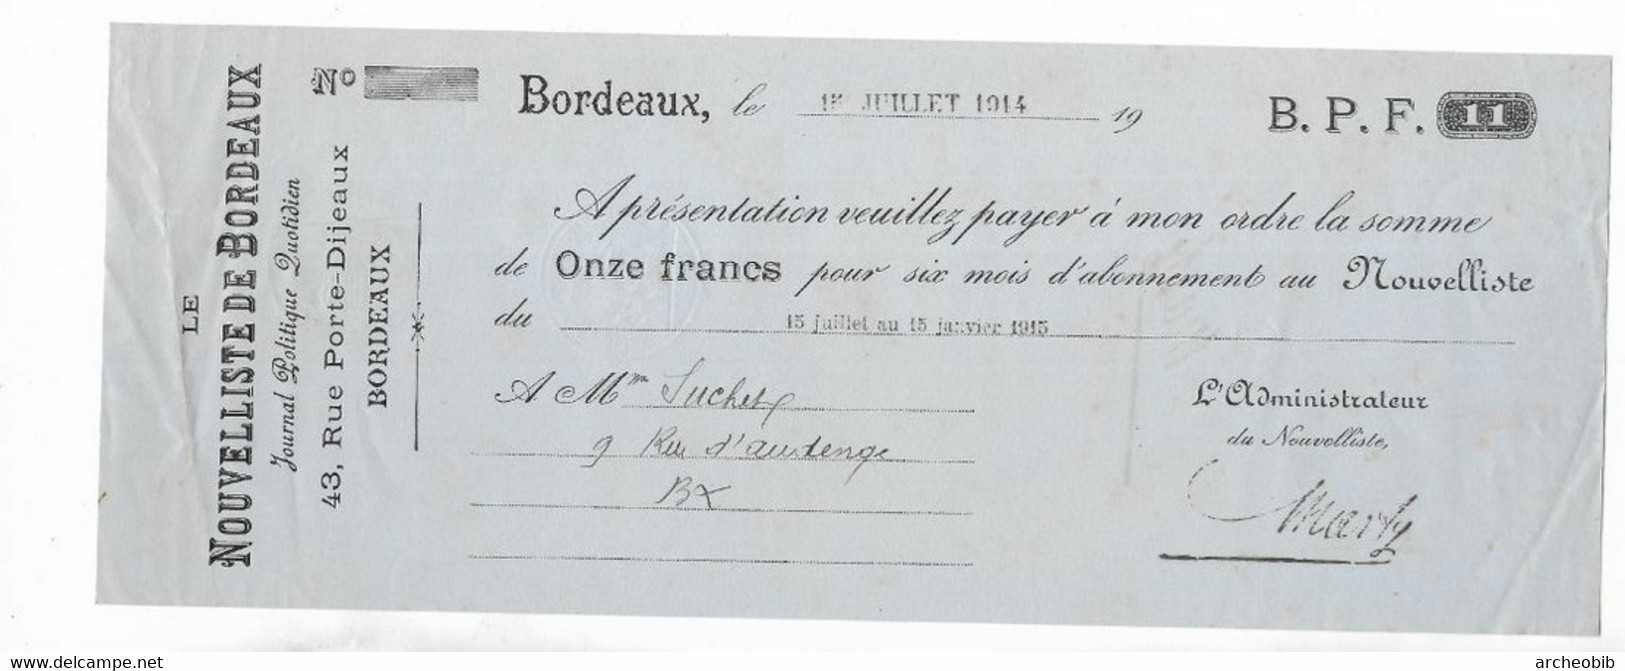 LE
NOUVELLISTE DE BORDEAUX
Journal Politique Quotidien
43, Rue Porte-Dijeaux
BORDEAUX
No
Bordeaux, le 15 JUILLET 1914 19
B. P. F. 11
A présentation veuillez payer à mon ordre la somme
de Onze francs pour six mois d'abonnement au Nouvelliste
du 15 juillet au 15 janvier 1915
A Mm Suchet
9 Rue d'audenge
BX
L'Administrateur
du Nouvelliste,
Marty
www.delcampe.net
archeobib